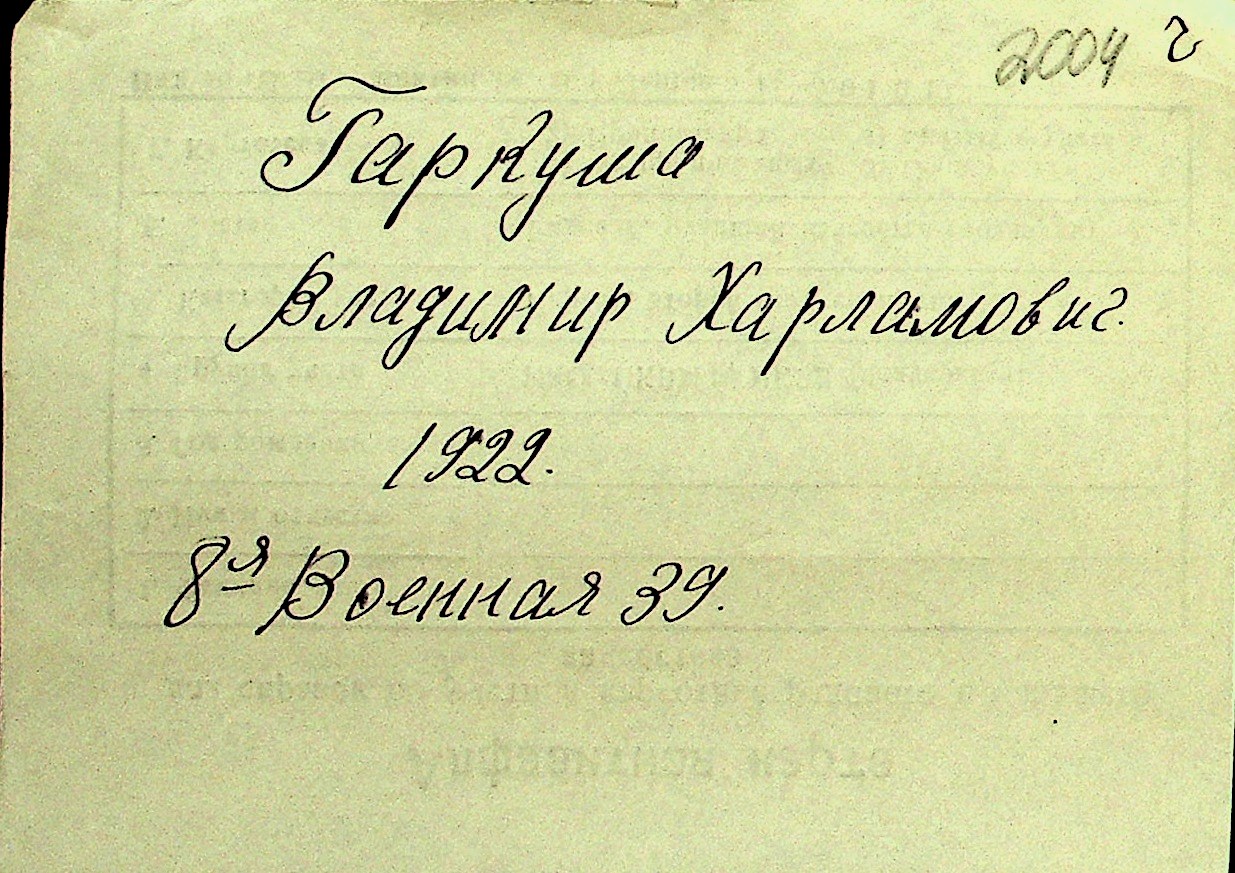 2004 г
Гаркуша
Владимир Харламович.
1922.
8я Военная 39.